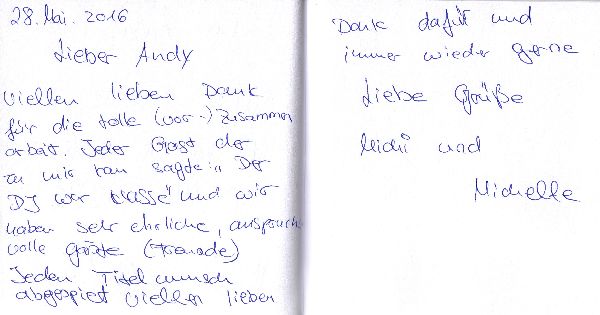 28. Mai. 2016
Lieber Andy
Viellen lieben Dank
für die tolle (vor-) Zusammen
arbeit. Jeder Gast der
zu mir kam sagte: „ Der
DJ war klasse" und wir
haben sehr ehrliche, anspruchs
volle Gäste (Freunde)
Jeden Titel wunsch
abgespielt viellen lieben
Dank dafür und
immer wieder gerne
Liebe Grüße
Michi und
Michelle